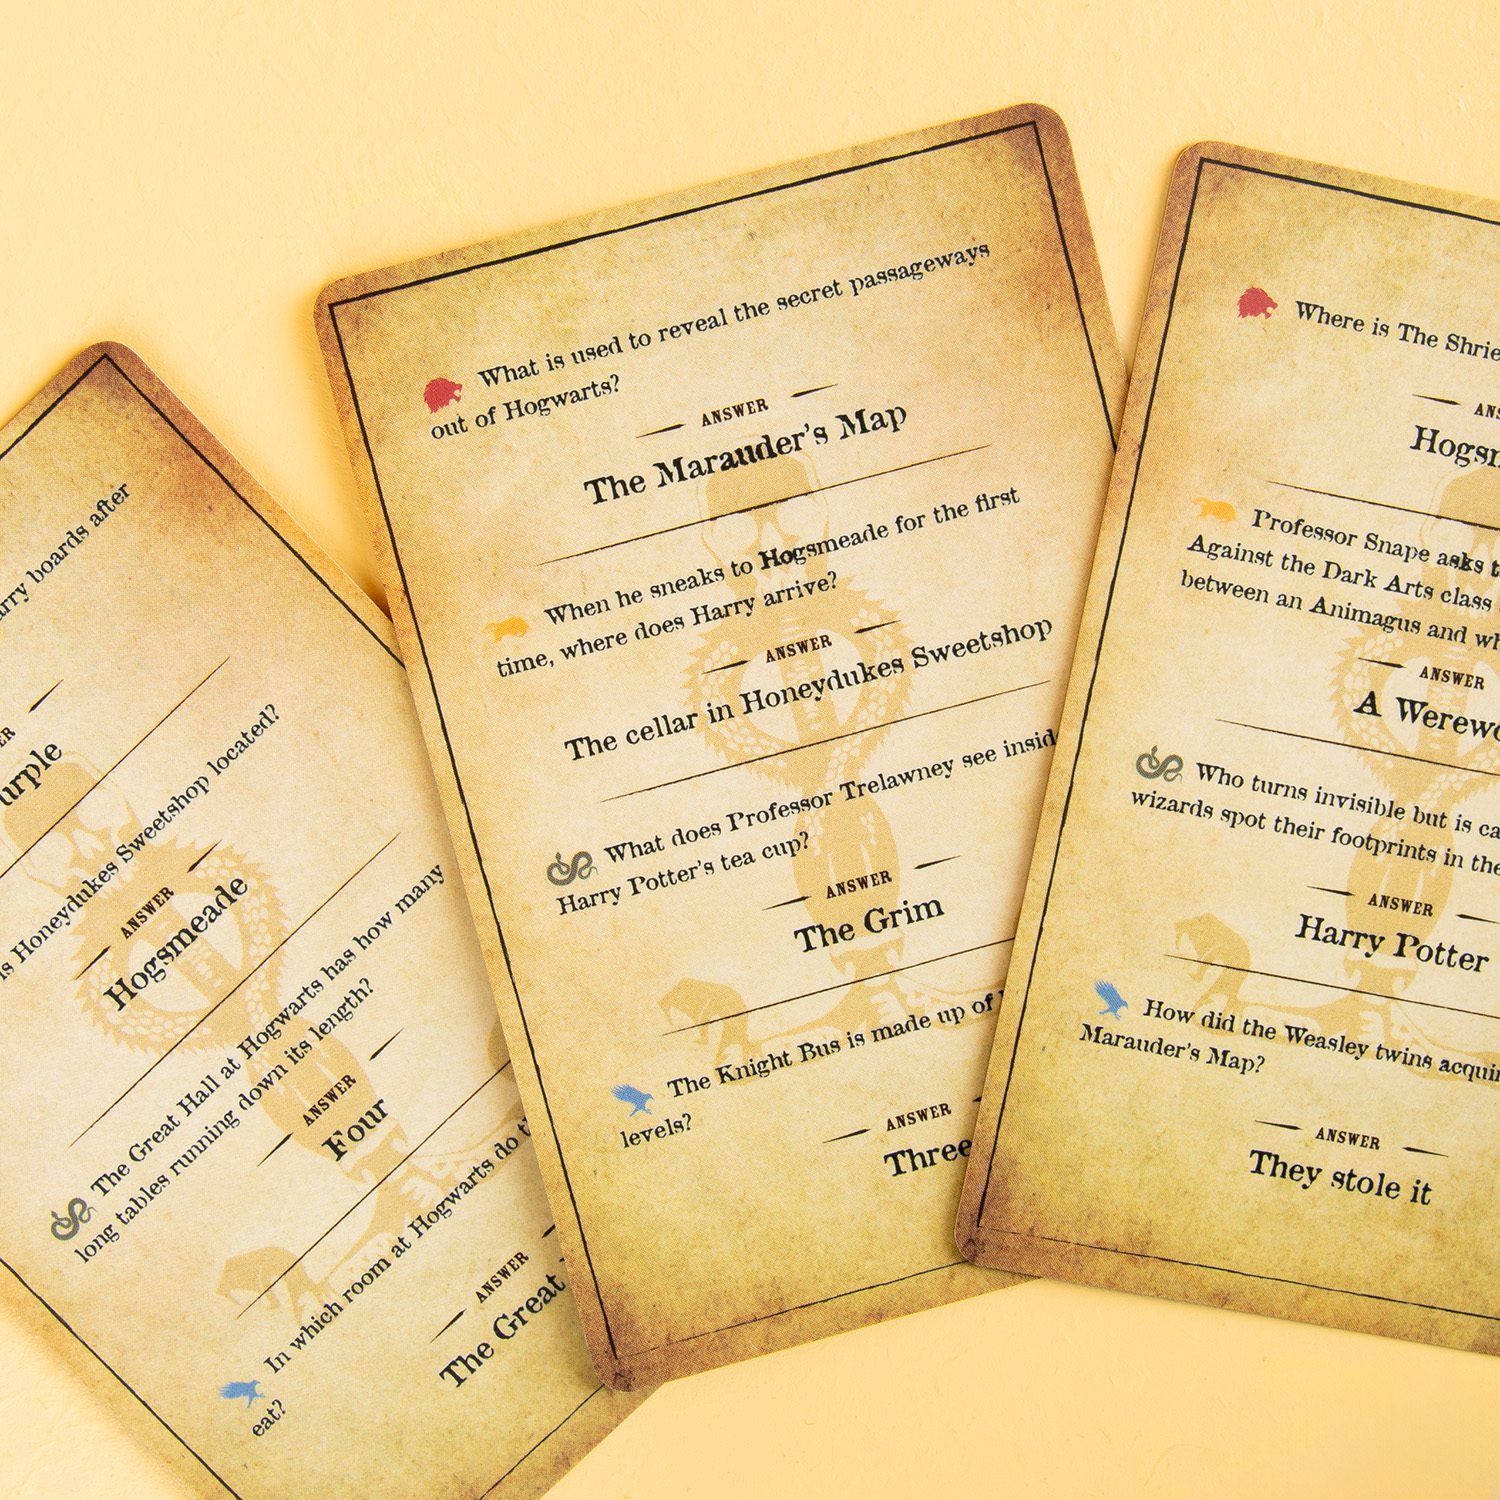 boards after
Honeydukes Sweetshop located?
ANSWER
Hogsmeade
The Great Hall at Hogwarts has how many
long tables running down its length?
ANSWER
Four
In which room at Hogwarts do
eat?
ANSWER
The Great
What is used to reveal the secret passageways
out of Hogwarts?
ANSWER
The Marauder's Map
When he sneaks to Hogsmeade for the first
time, where does Harry arrive?
ANSWER
The cellar in Honeydukes Sweetshop
What does Professor Trelawney see
Harry Potter's tea cup?
ANSWER
The Grim
The Knight Bus is made up of
levels?
ANSWER
Three
Where is The
ANSWER
Professor Snape asks
Against the Dark Arts class
between an Animagus and
ANSWER
A
Who turns invisible but is
wizards spot their footprints in the
ANSWER
Harry Potter
How did the Weasley twins
Marauder's Map?
ANSWER
They stole it